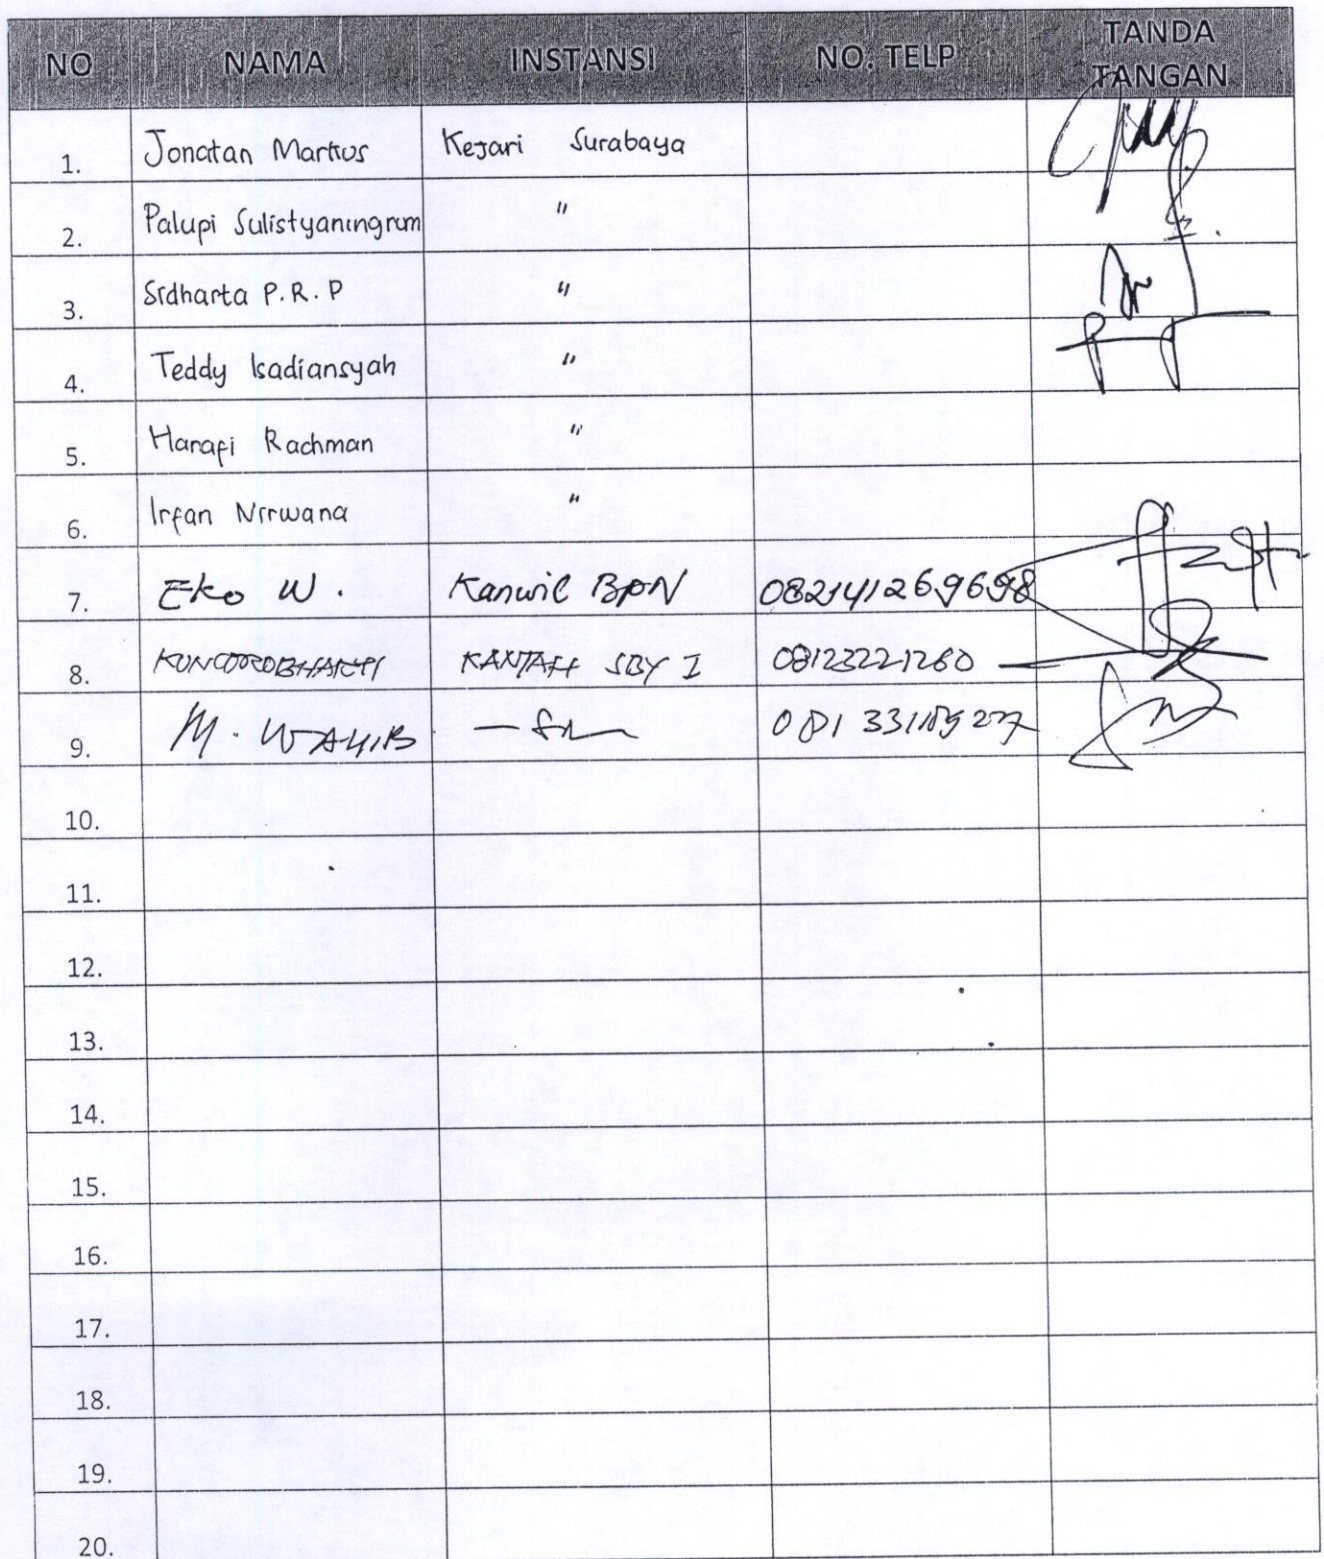 NO NAMA INSTANSI NO. TELP TANDA TANGAN
1. Jonatan Markus Kejari Surabaya
2. Palupi Sulistyaningrum "
3. Sidharta P.R.P "
4. Teddy Isadiansyah "
5. Hanafi Rachman "
6. Irfan Nirwana "
7. Eko W. Kanwil BPN 082141269698
8. KUNCOROBHAKTI KANTAH SBY I 08123221260
9. M. WAHIB
10.
11.
12.
13.
14.
15.
16.
17.
18.
19.
20.